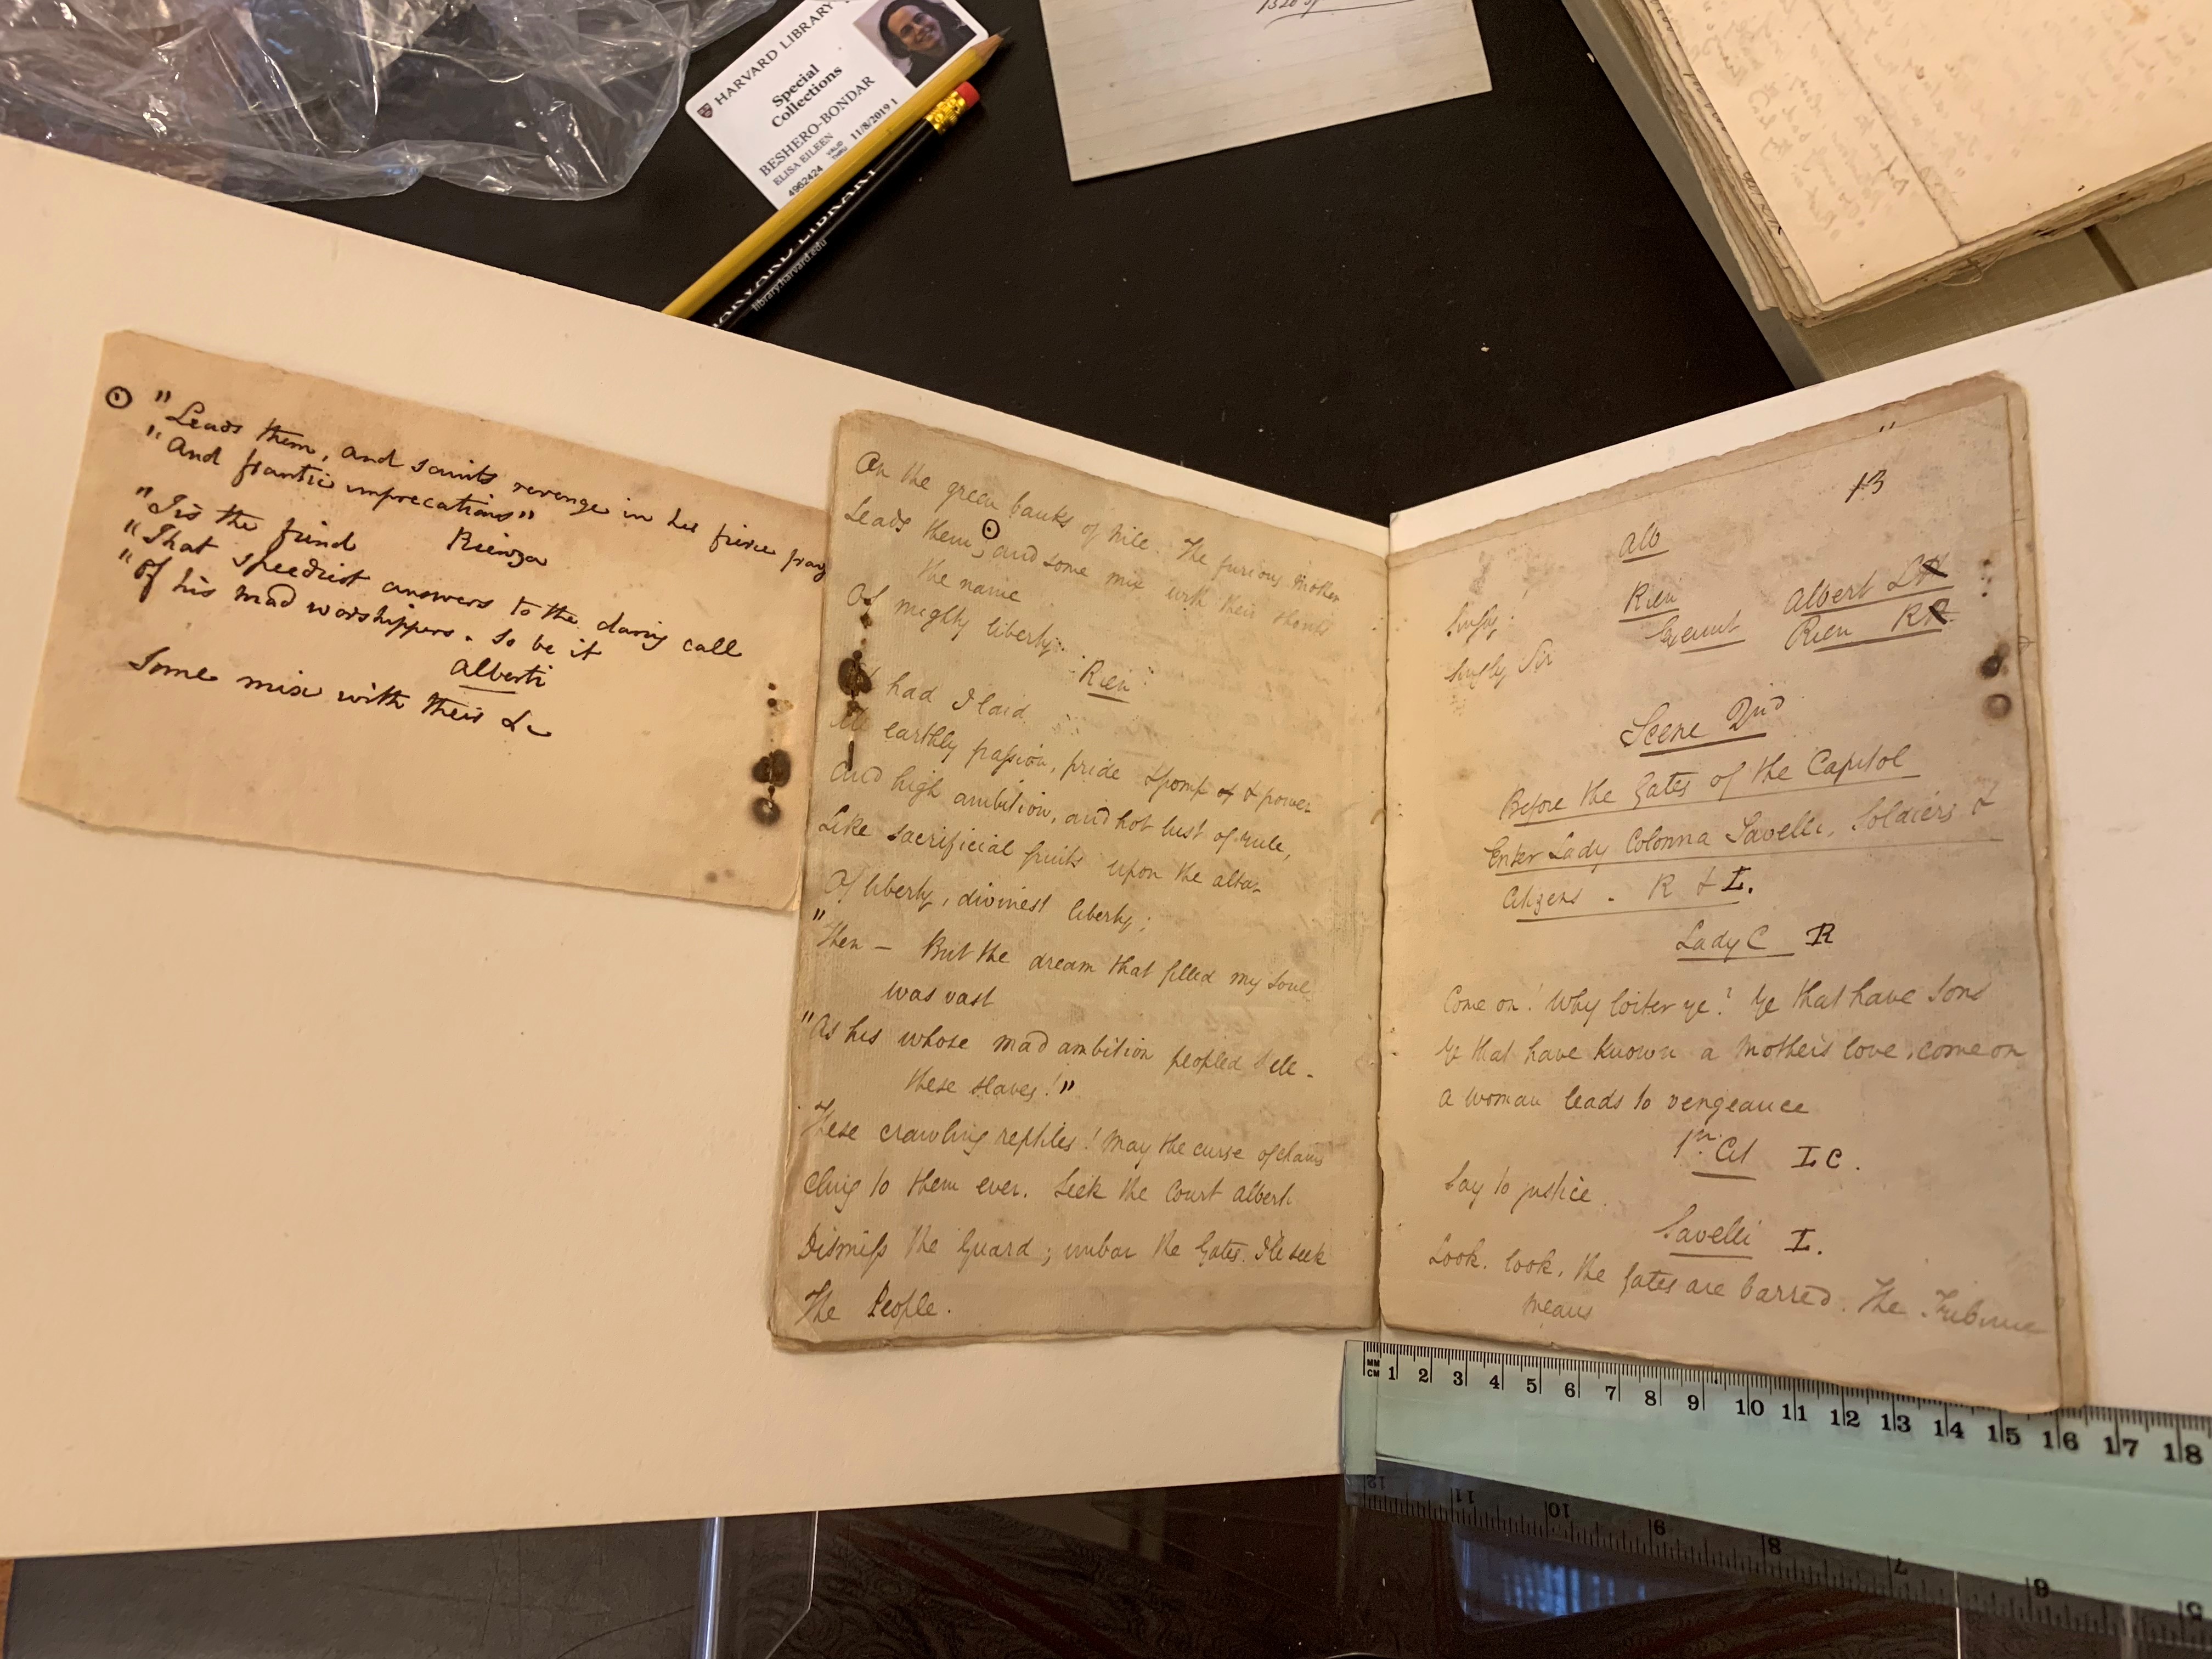 HARVARD LIBRARY
Special
Collections
BESHERO-BONDAR
ELISA EILEEN
VALID
THRU
11/8/2019 1
4962424
HARVARD LIBRARY
library.harvard.edu
"Leads them, and saints revenge in her fierce pray
"And frantic imprecations"
Rienza
"Tis the fiend
"That speediest answers to the daring call
"Of his mad worshippers. So be it
Alberti
Some mix with their &c
On the green banks of Nile. The furious mother
Leads them, and some mix with their shouts
the name
Of mighty liberty.
Rien
had I laid
All earthly passion, pride & pomp of & power
And high ambition, and hot lust of rule,
Like sacrificial fruits upon the altar
Of liberty, divinest liberty;
"Then — But the dream that filled my soul
was vast
"As his whose mad ambition peopled Hell
these slaves!"
These crawling reptiles! May the curse of chains
Cling to them ever. Seek the Court Alberti
Dismiss the Guard; unbar the Gates. I'le seek
The People.
"
13
Alb
Rien
Simply Sir
Exeunt
Albert LH
Rien RH
Scene 2nd
Before the Gates of the Capitol
Enter Lady Colonna Savelli, Soldiers &
Citizens. R & L.
Lady C R
Come on! Why loiter ye? Ye that have sons
Ye that have known a Mother's love, come on
A woman leads to vengeance
1st Cit L C.
Say to justice.
Savelli L.
Look. look. the Gates are barred. The Tribune
means
MM
CM
1 2 3 4 5 6 7 8 9 10 11 12 13 14 15 16 17 18
12 11 10 9 8 7 6 5